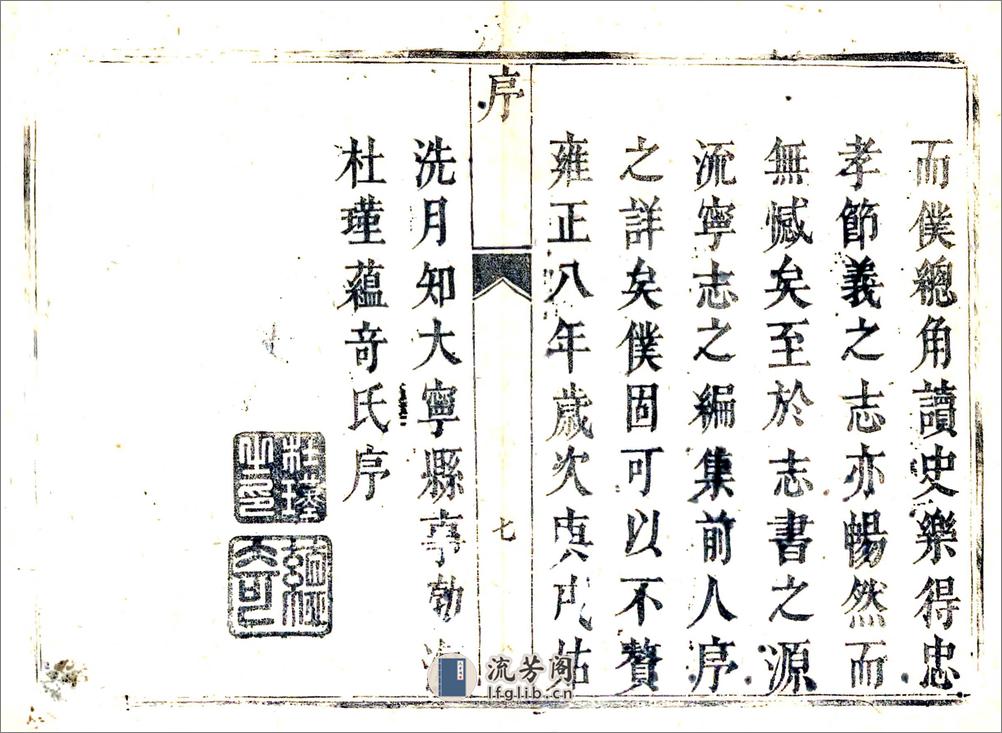 而僕總角讀史樂得忠
孝節義之志亦暢然而
無憾矣至於志書之源
流寧志之編集前人序
之詳矣僕固可以不贅
雍正八年歲次庚戌姑
序
七
洗月知大寧縣事勃海
杜瑾蘊奇氏序
杜瑾之印
蘊奇
流芳阁
lfglib.cn